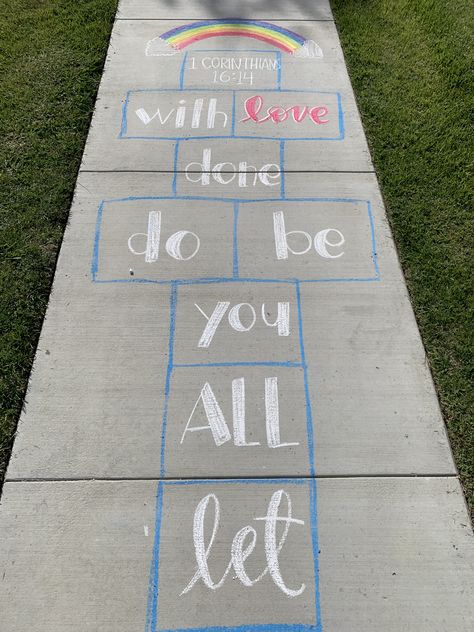 let
ALL
you
do be
done
with love
1 CORINTHIANS
16:14